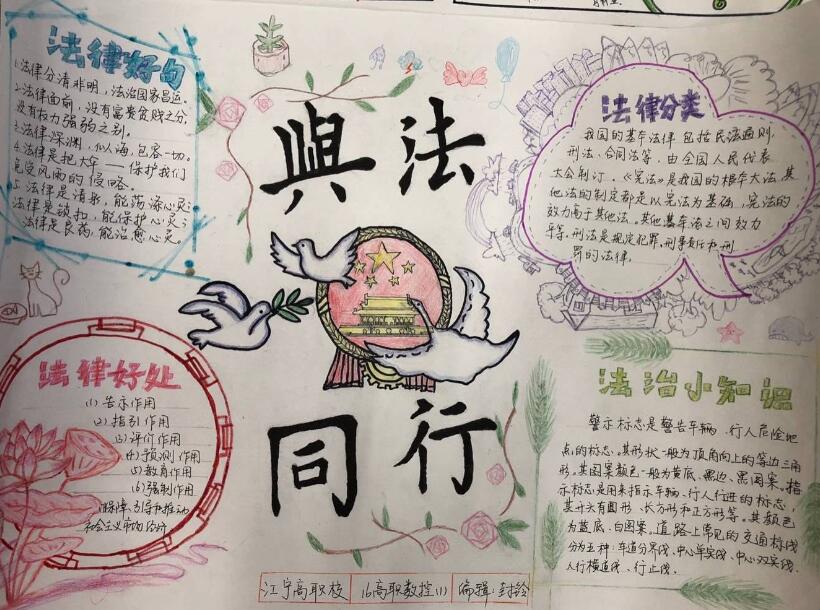 法律好句
1.法律分清非明，法治国家昌运。
2.法律面前，没有富贵贫贱之分，
没有权力强弱之别。
3.法律深渊，似海，包客一切。
4.法律是把大伞——保护我们
免受风雨的侵略。
5.法律是清泉，能荡涤心灵；
法律是锁扣，能保护心灵；
法律是良药，能治愈心灵。
與法
同行
法律分类
我国的基本法律包括民法通则、
刑法、合同法等，由全国人民代表
大会制订。《宪法》是我国的根本大法，其
他法的制定都是以宪法为基础，宪法的
效力高于其他法。其他基本法之间效力
平等，刑法是规定犯罪，刑事责任和刑
罚的法律。
法律好处
(1)告示作用
(2)指引作用
(3)评价作用
(4)预测作用
(5)教育作用
(6)强制作用
保障、引导和推动
社会主义市场经济
法治小知识
警示标志是警告车辆、行人危险地
点的标志，其形状一般为顶角向上的等边三角
形，其图案颜色一般为黄底、黑边、黑图案。指
示标志是用来指示车辆、行人行进的标志，
其形状有圆形、长方形和正方形等，其颜色
为蓝底、白图案。道路上常见的交通标线
分为五种：车道分界线、中心单实线、中心双实线、
人行横道线、行止线。
江宁高职校 16高职数控(1) 编辑：封玲